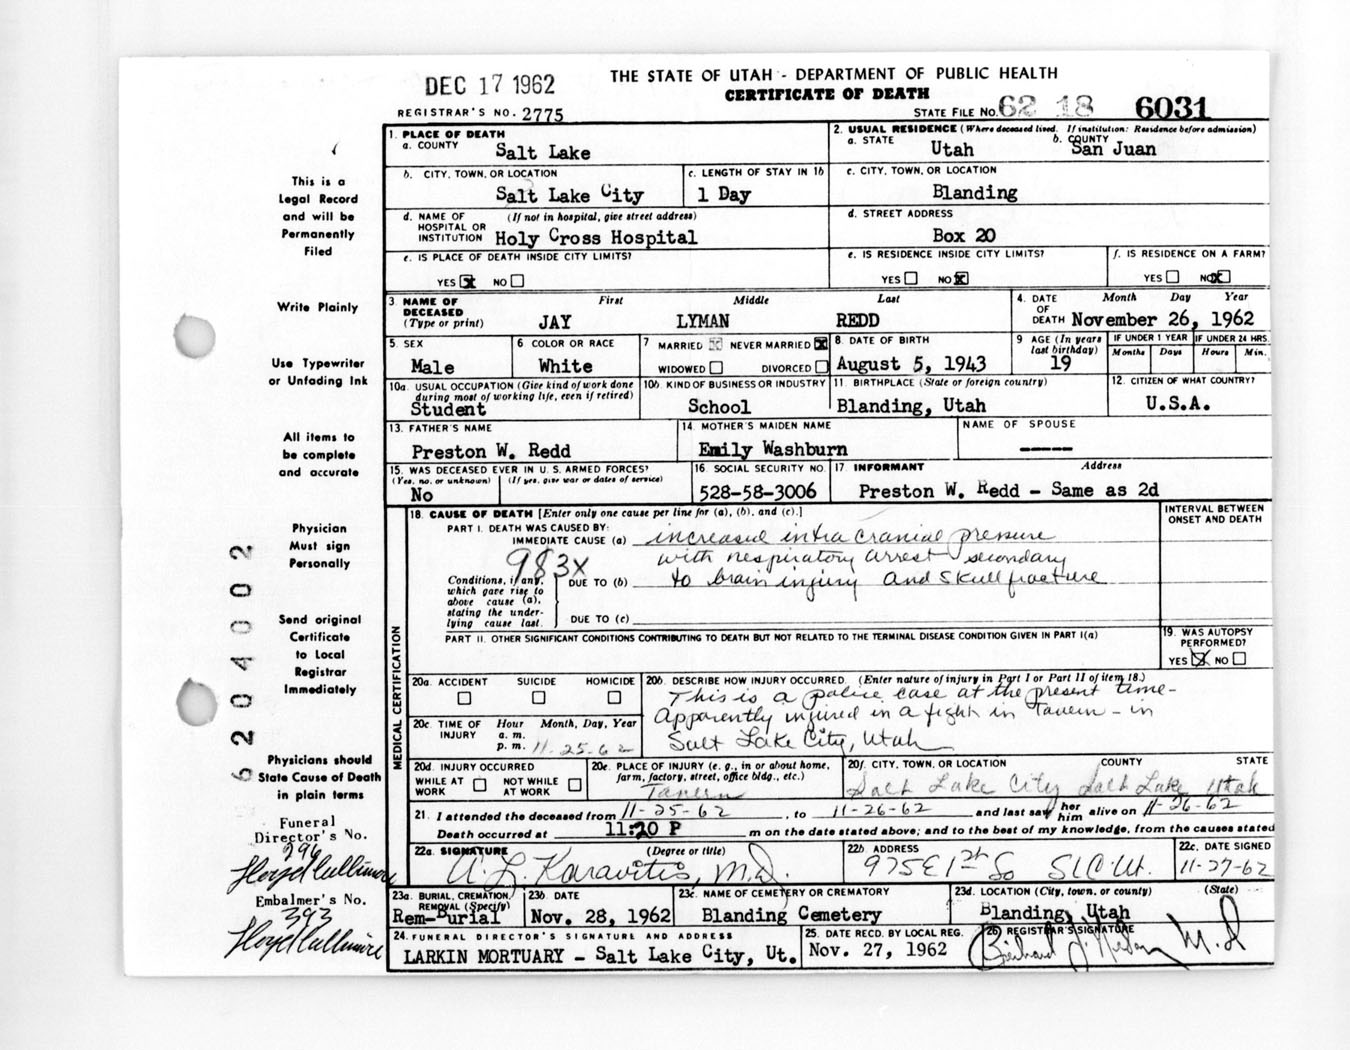 DEC 17 1962
THE STATE OF UTAH - DEPARTMENT OF PUBLIC HEALTH
CERTIFICATE OF DEATH
REGISTRAR'S NO. 2775
STATE FILE NO. 62 18 6031
This is a
Legal Record
and will be
Permanently
Filed
Write Plainly
Use Typewriter
or Unfading Ink
All items to
be complete
and accurate
Physician
Must sign
Personally
Send original
Certificate
to Local
Registrar
Immediately
Physicians should
State Cause of Death
in plain terms
Funeral
Director's No.
296
Floyd Cullimore
Embalmer's No.
393
Floyd Cullimore
6204002
1. PLACE OF DEATH
a. COUNTY Salt Lake
2. USUAL RESIDENCE (Where deceased lived. If institution: Residence before admission)
a. STATE Utah b. COUNTY San Juan
b. CITY, TOWN, OR LOCATION Salt Lake City
c. LENGTH OF STAY IN 1b 1 Day
c. CITY, TOWN, OR LOCATION Blanding
d. NAME OF HOSPITAL OR INSTITUTION (If not in hospital, give street address) Holy Cross Hospital
d. STREET ADDRESS Box 20
e. IS PLACE OF DEATH INSIDE CITY LIMITS?
YES NO
e. IS RESIDENCE INSIDE CITY LIMITS?
YES NO
f. IS RESIDENCE ON A FARM?
YES NO
3. NAME OF DECEASED (Type or print) First Middle Last
JAY LYMAN REDD
4. DATE OF DEATH Month Day Year
November 26, 1962
5. SEX Male
6 COLOR OR RACE White
7 MARRIED NEVER MARRIED
WIDOWED DIVORCED
8. DATE OF BIRTH August 5, 1943
9 AGE (In years last birthday) 19
IF UNDER 1 YEAR Months Days
IF UNDER 24 HRS. Hours Min.
10a. USUAL OCCUPATION (Give kind of work done during most of working life, even if retired) Student
10b. KIND OF BUSINESS OR INDUSTRY School
11. BIRTHPLACE (State or foreign country) Blanding, Utah
12. CITIZEN OF WHAT COUNTRY? U.S.A.
13. FATHER'S NAME Preston W. Redd
14. MOTHER'S MAIDEN NAME Emily Washburn
NAME OF SPOUSE -----
15. WAS DECEASED EVER IN U. S. ARMED FORCES?
(Yes, no, or unknown) (If yes, give war or dates of service)
No
16. SOCIAL SECURITY NO. 528-58-3006
17. INFORMANT Address
Preston W. Redd - Same as 2d
MEDICAL CERTIFICATION
18. CAUSE OF DEATH [Enter only one cause per line for (a), (b), and (c).]
INTERVAL BETWEEN ONSET AND DEATH
PART I. DEATH WAS CAUSED BY:
IMMEDIATE CAUSE (a) increased intra cranial pressure
with respiratory arrest secondary
983X
Conditions, if any, which gave rise to above cause (a), stating the underlying cause last.
DUE TO (b) to brain injury and skull fracture
DUE TO (c)
PART II. OTHER SIGNIFICANT CONDITIONS CONTRIBUTING TO DEATH BUT NOT RELATED TO THE TERMINAL DISEASE CONDITION GIVEN IN PART I(a)
19. WAS AUTOPSY PERFORMED?
YES NO
20a. ACCIDENT SUICIDE HOMICIDE
20b. DESCRIBE HOW INJURY OCCURRED. (Enter nature of injury in Part I or Part II of item 18.)
This is a police case at the present time-
Apparently injured in a fight in Tavern - in
Salt Lake City, Utah
20c. TIME OF INJURY Hour Month, Day, Year
a. m.
p. m. 11-25-62
20d. INJURY OCCURRED
WHILE AT WORK NOT WHILE AT WORK
20e. PLACE OF INJURY (e. g., in or about home, farm, factory, street, office bldg., etc.)
Tavern
20f. CITY, TOWN, OR LOCATION COUNTY STATE
Salt Lake City Salt Lake Utah
21. I attended the deceased from 11-25-62, to 11-26-62 and last saw her him alive on 11-26-62
Death occurred at 11:20 P m on the date stated above; and to the best of my knowledge, from the causes stated
22a. SIGNATURE (Degree or title)
A. L. Karavitis, M.D.
22b ADDRESS 975 E 1st So SLC Ut.
22c. DATE SIGNED 11-27-62
23a. BURIAL, CREMATION, REMOVAL (Specify) Rem-Burial
23b. DATE Nov. 28, 1962
23c. NAME OF CEMETERY OR CREMATORY Blanding Cemetery
23d. LOCATION (City, town, or county) (State)
Blanding, Utah
24. FUNERAL DIRECTOR'S SIGNATURE AND ADDRESS
LARKIN MORTUARY - Salt Lake City, Ut.
25. DATE RECD. BY LOCAL REG. Nov. 27, 1962
26 REGISTRAR'S SIGNATURE
M.D